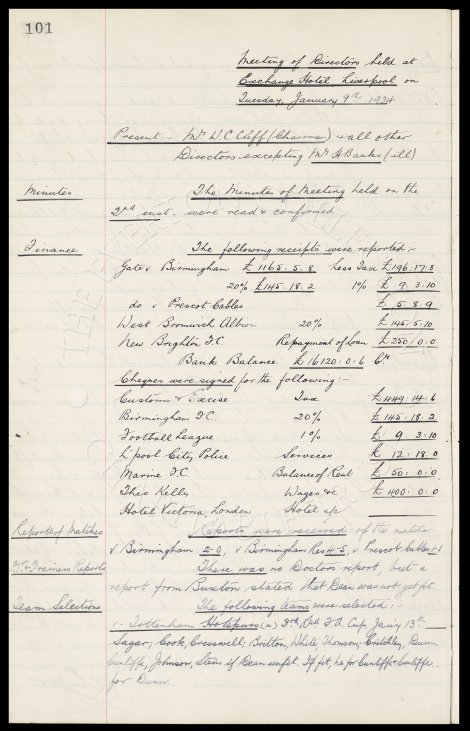 101
Meeting of Directors held at
Exchange Hotel, Liverpool on
Tuesday, January 9th 1934
Present - Mr W.C. Cliff (Chairman) & all other
Directors excepting Mr H Banks (ill)
Minutes The Minutes of Meeting held on the
3rd inst. were read & confirmed
Finance The following receipts were reported :-
Gate v Birmingham £1165. 5. 8 less Tax £196. 17. 8
20% £145. 18. 2 1% £ 9. 3. 10
do v Prescot Cables £ 5. 8. 9
West Bromwich Albion 20% £145. 5. 10
New Brighton F.C. Repayment of Loan £250. 0. 0
Bank Balance £16120. 0. 6 Cr
Cheques were signed for the following :-
Customs & Excise Tax
Birmingham F.C. 20% £145. 18. 2
Football League 1% £ 9. 3. 10
L'pool City Police Services £ 12. 18. 0
Marine F.C. Balance of Rent £ 50. 0. 0
Theo Kelly Wages &c £400. 0. 0
Hotel Victoria, London Hotel a/c £
Reports of Matches Reports were received of the matches
v Birmingham 2-0, v Birmingham Res 4-5, v Prescot Cables
Dr. & Trainers Reports There was no Doctors report, but a
report from Buxton stated that Dean was not yet fit.
Team Selections The following teams were selected :-
v. Tottenham Hotspurs (a) 3rd Rd F.A. Cup, Jan'y 13th
Sagar; Cook, Cresswell; Britton, White, Thomson; Critchley, Dunn
Cunliffe, Johnson, Stein if Dean unfit. If fit, he for Cunliffe & Cunliffe
for Dunn.